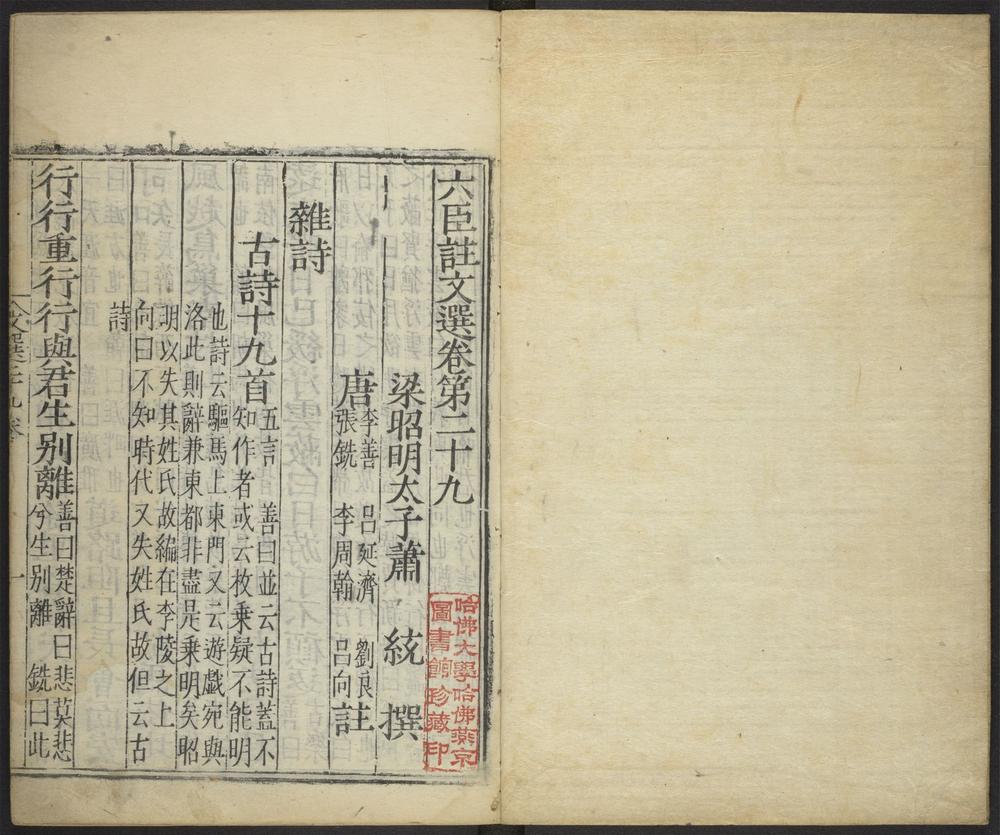 六臣註文選卷第二十九
梁昭明太子蕭統撰
唐
李善 呂延濟 劉良
張銑 李周翰 呂向
註
雜詩
古詩十九首
五言 善曰並云古詩蓋不
知作者或云枚乗疑不能明
也詩云驅馬上東門又云遊戲宛與
洛此則辭兼東都非盡是乗明矣昭
明以失其姓氏故編在李陵之上
向曰不知時代又失姓氏故但云古
詩
行行重行行與君生别離
善曰楚辭曰悲莫悲
兮生别離 銑曰此
文選二十九卷
一
哈佛大學哈佛燕京
圖書館珍藏印